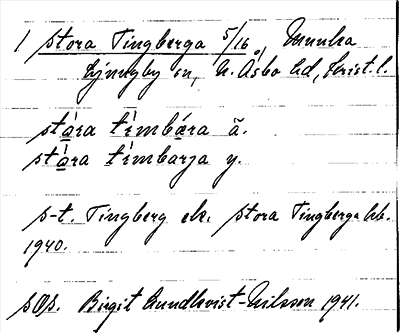 1 Stora Tingberga 5/16, Munka
Ljungby sn, N. Åsbo hd, Krist. l.
stára tímbæra ã.
stára tímbarja y.
s-t. Tingberg ek. Stora Tingberga hb.
1940.
sOs. Birgit Rundkvist-Nilsson 1941.